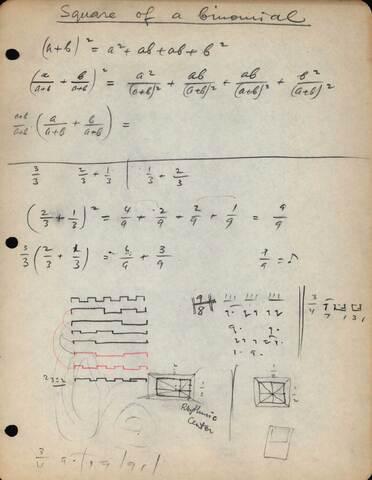 Square of a binomial
(a+b)² = a² + ab + ab + b²
(a/(a+b) + b/(a+b))² = a²/(a+b)² + ab/(a+b)² + ab/(a+b)² + b²/(a+b)²
(a+b)/(a+b) · (a/(a+b) + b/(a+b)) =
3/3 2/3 + 1/3 1/3 + 2/3
(2/3 + 1/3)² = 4/9 + 2/9 + 2/9 + 1/9 = 9/9
3/3 (2/3 + 1/3) = 6/9 + 3/9 1/9 = ♪
9/8
3/4
Rhythmic
Center
3/4